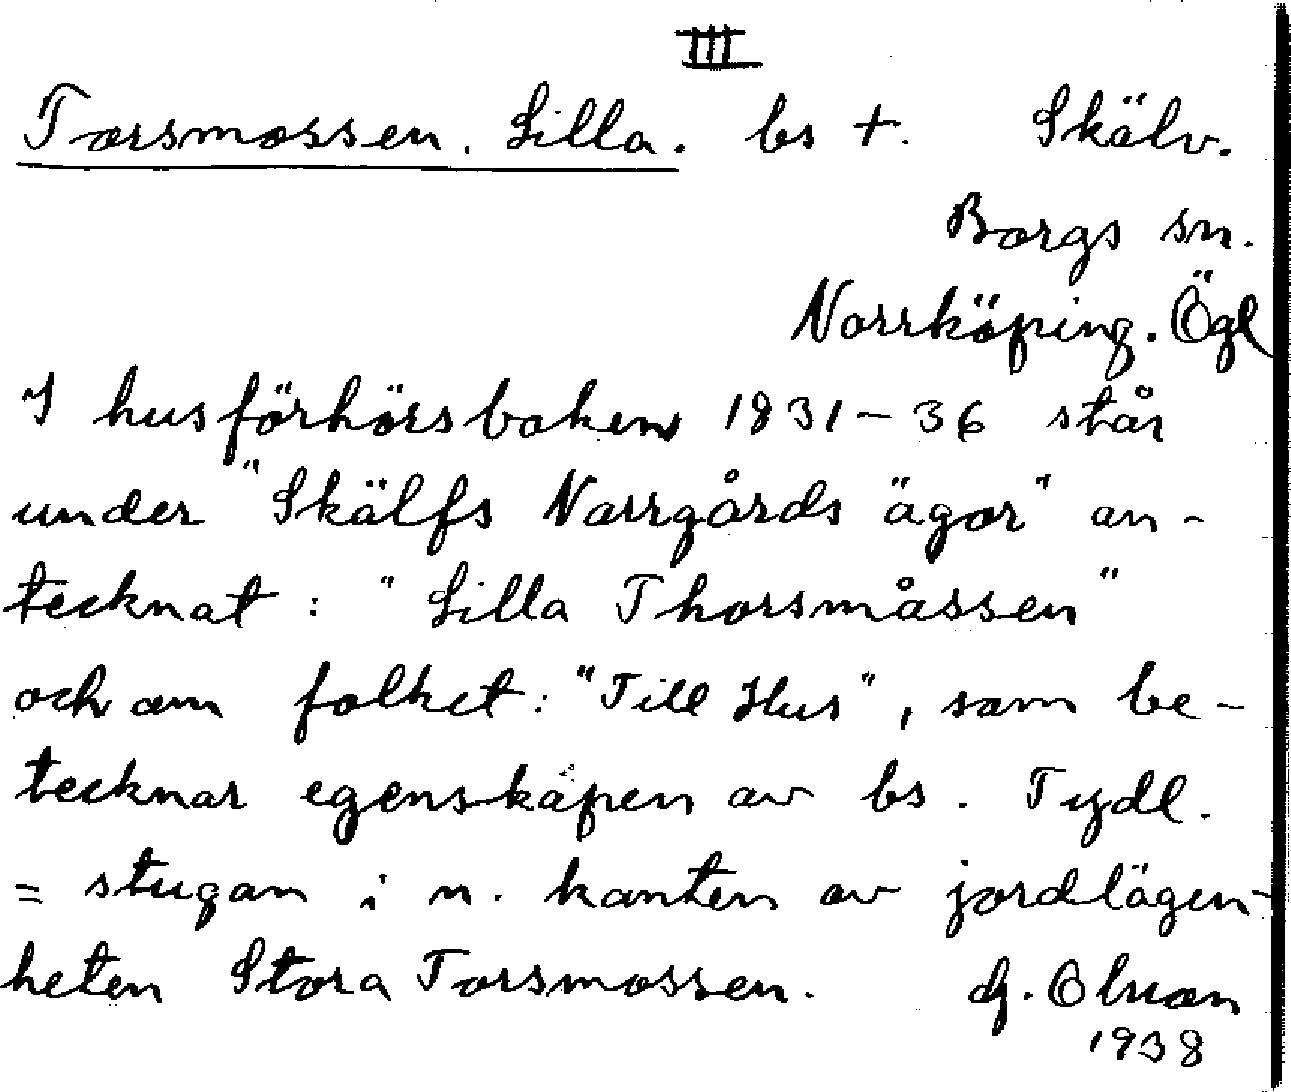 III
Torsmossen. Lilla. bs +. Skälv.
Borgs sn.
Norrköping. Ögl
I husförhörsboken 1831-36 står
under "Skälfs Norrgårds ägor" an-
tecknat : "Lilla Thorsmåssen"
och om folket: "Till Hus", som be-
tecknar egenskapen av bs. Tydl.
= stugan i n. kanten av jordlägen-
heten Stora Torsmossen. G. Olson
1938